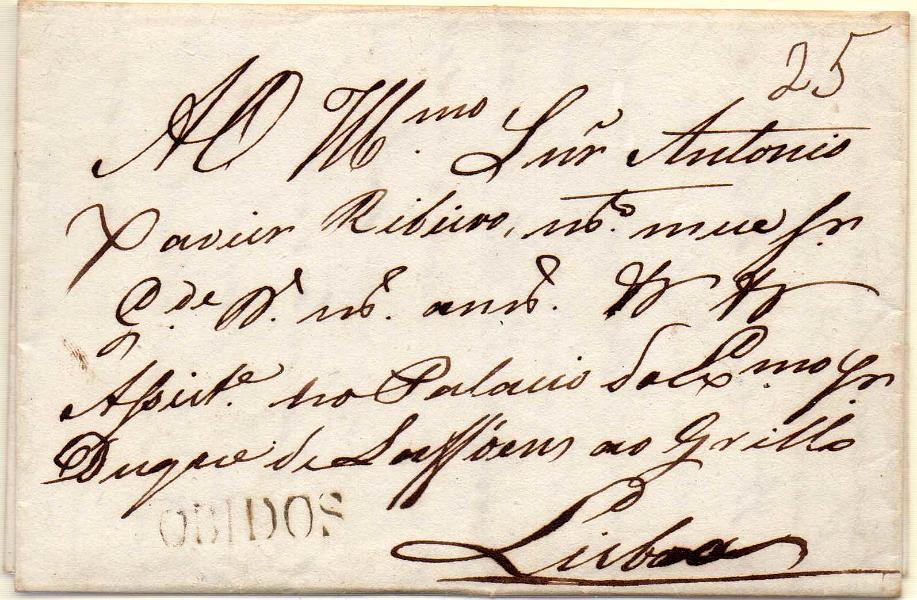 25
AO Illmo Snr Antonio
Xavier Ribeiro, mto meu Sr
Gde Ds. ms. ans.
Assiste. no Palacio do Exmo Sr
Duque de Laffoens ao Grillo
OBIDOS
Lisboa